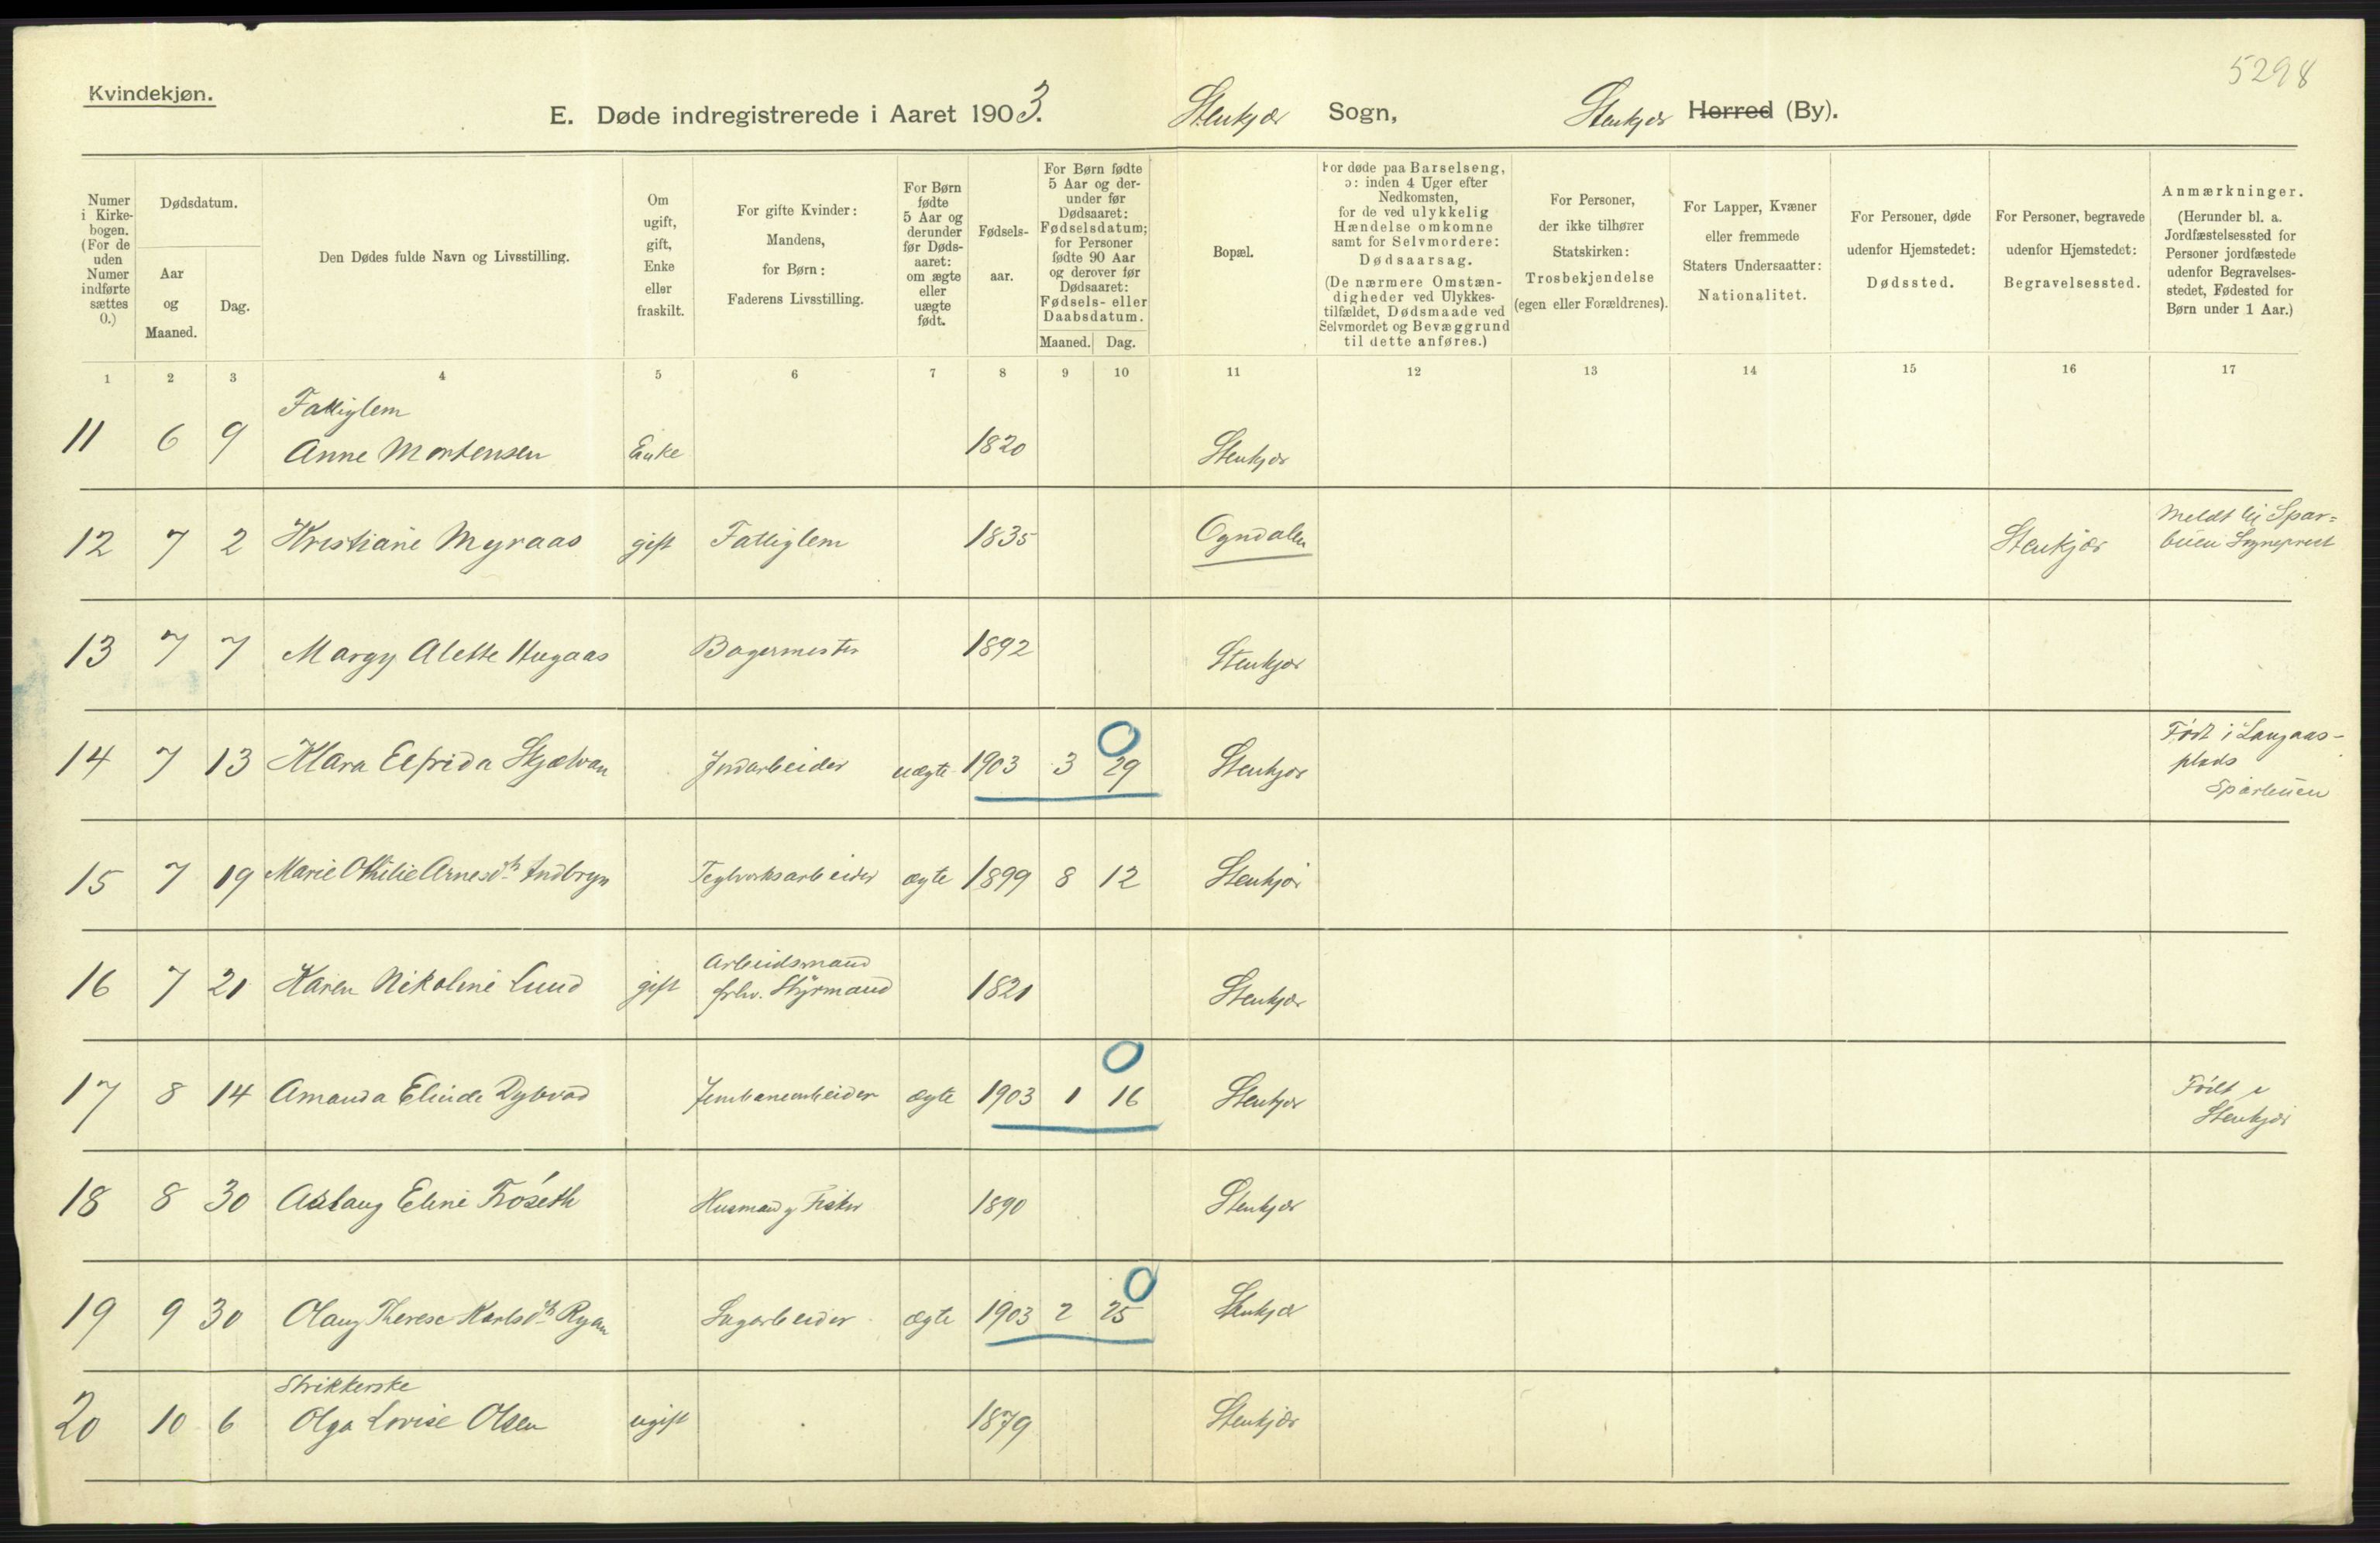 5298
Kvindekjøn.
E. Døde indregistrerede i Aaret 1903. Stenkjær Sogn, Stenkjær Herred (By).
Numer i Kirkebogen. (For de uden Numer indførte sættes 0.)
Dødsdatum.
Aar og Maaned.
Dag.
Den Dødes fulde Navn og Livsstilling.
Om ugift, gift, Enke eller fraskilt.
For gifte Kvinder: Mandens, for Børn: Faderens Livsstilling.
For Børn fødte 5 Aar og derunder før Dødsaaret: om ægte eller uægte født.
Fødselsaar.
For Børn fødte 5 Aar og derunder før Dødsaaret: Fødselsdatum; for Personer fødte 90 Aar og derover før Dødsaaret: Fødsels- eller Daabsdatum.
Maaned. Dag.
Bopæl.
For døde paa Barselseng, ɔ: inden 4 Uger efter Nedkomsten, for de ved ulykkelig Hændelse omkomne samt for Selvmordere: Dødsaarsag. (De nærmere Omstændigheder ved Ulykkestilfældet, Dødsmaade ved Selvmordet og Bevæggrund til dette anføres.)
For Personer, der ikke tilhører Statskirken: Trosbekjendelse (egen eller Forældrenes).
For Lapper, Kvæner eller fremmede Staters Undersaatter: Nationalitet.
For Personer, døde udenfor Hjemstedet: Dødssted.
For Personer, begravede udenfor Hjemstedet: Begravelsessted.
Anmærkninger. (Herunder bl. a. Jordfæstelsessted for Personer jordfæstede udenfor Begravelsesstedet, Fødested for Børn under 1 Aar.)
1 2 3 4 5 6 7 8 9 10 11 12 13 14 15 16 17
Fattiglem
11 6 9 Anne Mortensen Enke 1820 Stenkjær
12 7 2 Kristiane Myraas gift Fattiglem 1835 Ogndalen Stenkjær Meldt til Spar=
buen Sogneprest
13 7 7 Margy Alette Hugaas Bagermester 1892 Stenkjær
14 7 13 Klara Elfrida Skjælvan Jordarbeider uægte 1903 3 29 Stenkjær Født i Langaas-
plads
Sparbuen
15 7 19 Marie Othilie Arnesdtr Indbryn Teglverksarbeider ægte 1899 8 12 Stenkjær
Arbeidsmand
16 7 21 Karen Nikoline Lund gift frhv. Styrmand 1821 Stenkjær
17 8 14 Amanda Elinde Dybvad Jernbanearbeider ægte 1903 1 16 Stenkjær Født i
Stenkjær
18 8 30 Aslaug Eline Trøseth Husmand og Fisker 1890 Stenkjær
19 9 30 Olaug Therese Karlsdtr Ryan Sagarbeider ægte 1903 2 25 Stenkjær
Strikkerske
20 10 6 Olga Lovise Olsen ugift 1879 Stenkjær